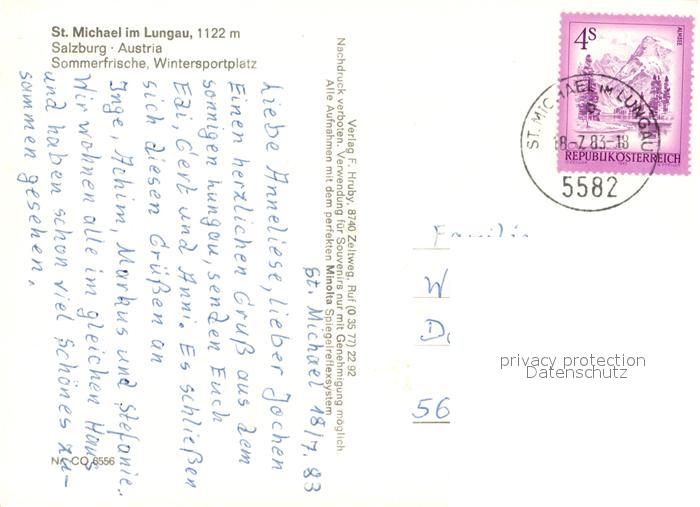 St. Michael im Lungau, 1122 m
Salzburg · Austria
Sommerfrische, Wintersportplatz
St. Michael 18/7. 83
Liebe Anneliese, lieber Jochen
Einen herzlichen Gruß aus dem
sonnigen Lungau, senden Euch
Edi, Gert und Anni. Es schließen
sich diesen Grüßen an
Inge, Achim, Markus und Stefanie.
Wir wohnen alle im gleichen Haus
und haben schon viel schönes zu-
sammen gesehen.
Verlag F. Hruby, 8740 Zeltweg, Ruf (0 35 77) 22 92
Nachdruck verboten. Verwendung für Souvenirs nur mit Genehmigung möglich
Alle Aufnahmen mit dem perfekten Minolta Spiegelreflexsystem
4s
ALMSEE
REPUBLIK ÖSTERREICH
ST. MICHAEL IM LUNGAU
18-7.83-18
5582
Familie
W
D
56
privacy protection
Datenschutz
6556